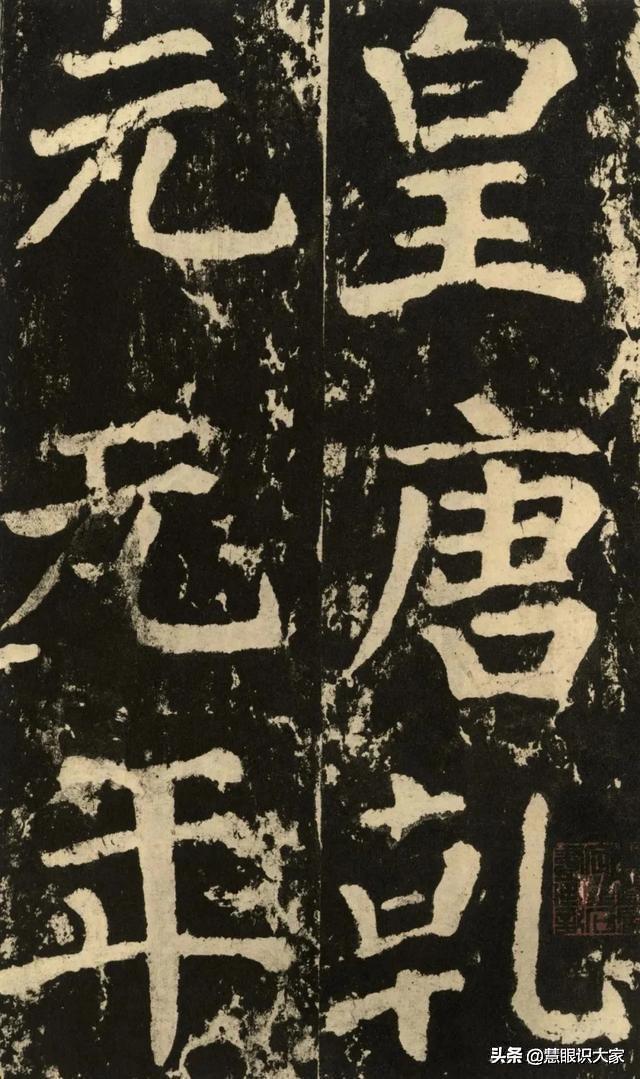 皇唐乾
元元年
头条 @慧眼识大家